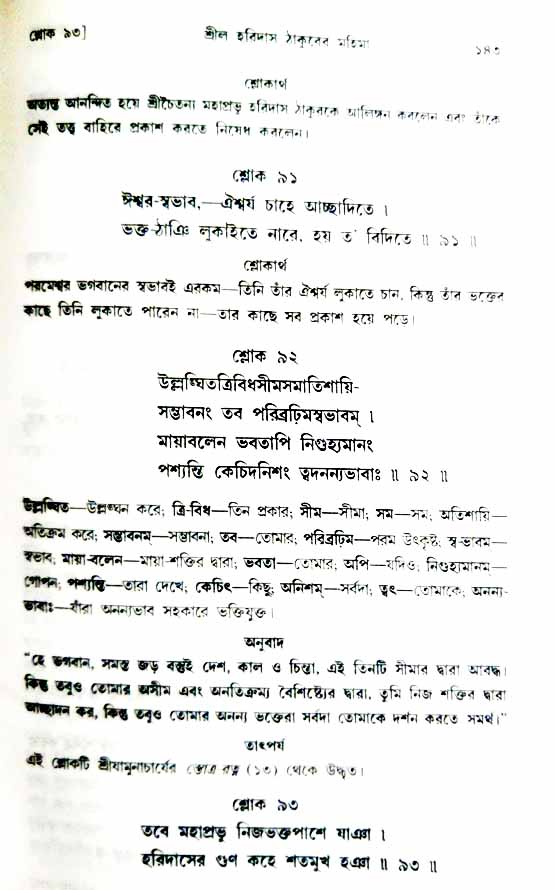 শ্লোক ৯৩]
শ্রীল হরিদাস ঠাকুরের মহিমা
১৪৩
শ্লোকার্থ
অত্যন্ত আনন্দিত হয়ে শ্রীচৈতন্য মহাপ্রভু হরিদাস ঠাকুরকে আলিঙ্গন করলেন এবং তাঁকে
সেই তত্ত্ব বাহিরে প্রকাশ করতে নিষেধ করলেন।
শ্লোক ৯১
ঈশ্বর-স্বভাব,—ঐশ্বর্য চাহে আচ্ছাদিতে ।
ভক্ত-ঠাঞি লুকাইতে নারে, হয় ত' বিদিতে ॥ ৯১ ॥
শ্লোকার্থ
পরমেশ্বর ভগবানের স্বভাবই এরকম—তিনি তাঁর ঐশ্বর্য লুকাতে চান, কিন্তু তাঁর ভক্তের
কাছে তিনি লুকাতে পারেন না—তার কাছে সব প্রকাশ হয়ে পড়ে।
শ্লোক ৯২
উল্লঙ্ঘিতত্রিবিধসীমসমাতিশায়ি-
সম্ভাবনং তব পরিব্রঢ়িমস্বভাবম্ ।
মায়াবলেন ভবতাপি নিগুহ্যমানং
পশ্যন্তি কেচিদনিশং ত্বদনন্যভাবাঃ ॥ ৯২ ॥
উল্লঙ্ঘিত—উল্লঙ্ঘন করে; ত্রি-বিধ—তিন প্রকার; সীম—সীমা; সম—সম; অতিশায়ি—
অতিক্রম করে; সম্ভাবনম্—সম্ভাবনা; তব—তোমার; পরিব্রঢ়িম—পরম উৎকৃষ্ট; স্ব-ভাবম্—
স্বভাব; মায়া-বলেন—মায়া-শক্তির দ্বারা; ভবতা—তোমার; অপি—যদিও; নিগুহ্যমানম্—
গোপন; পশ্যন্তি—তারা দেখে; কেচিৎ—কিছু; অনিশম্—সর্বদা; ত্বৎ—তোমাকে; অনন্য-
ভাবাঃ—যাঁরা অনন্যভাব সহকারে ভক্তিযুক্ত।
অনুবাদ
"হে ভগবান, সমস্ত জড় বস্তুই দেশ, কাল ও চিন্তা, এই তিনটি সীমার দ্বারা আবদ্ধ।
কিন্তু তবুও তোমার অসীম এবং অনতিক্রম্য বৈশিষ্ট্যের দ্বারা, তুমি নিজ শক্তির দ্বারা
আচ্ছাদন কর, কিন্তু তবুও তোমার অনন্য ভক্তেরা সর্বদা তোমাকে দর্শন করতে সমর্থ।"
তাৎপর্য
এই শ্লোকটি শ্রীযামুনাচার্যের স্তোত্র রত্ন (১৩) থেকে উদ্ধৃত।
শ্লোক ৯৩
তবে মহাপ্রভু নিজভক্তপাশে যাঞা ।
হরিদাসের গুণ কহে শতমুখ হঞা ॥ ৯৩ ॥